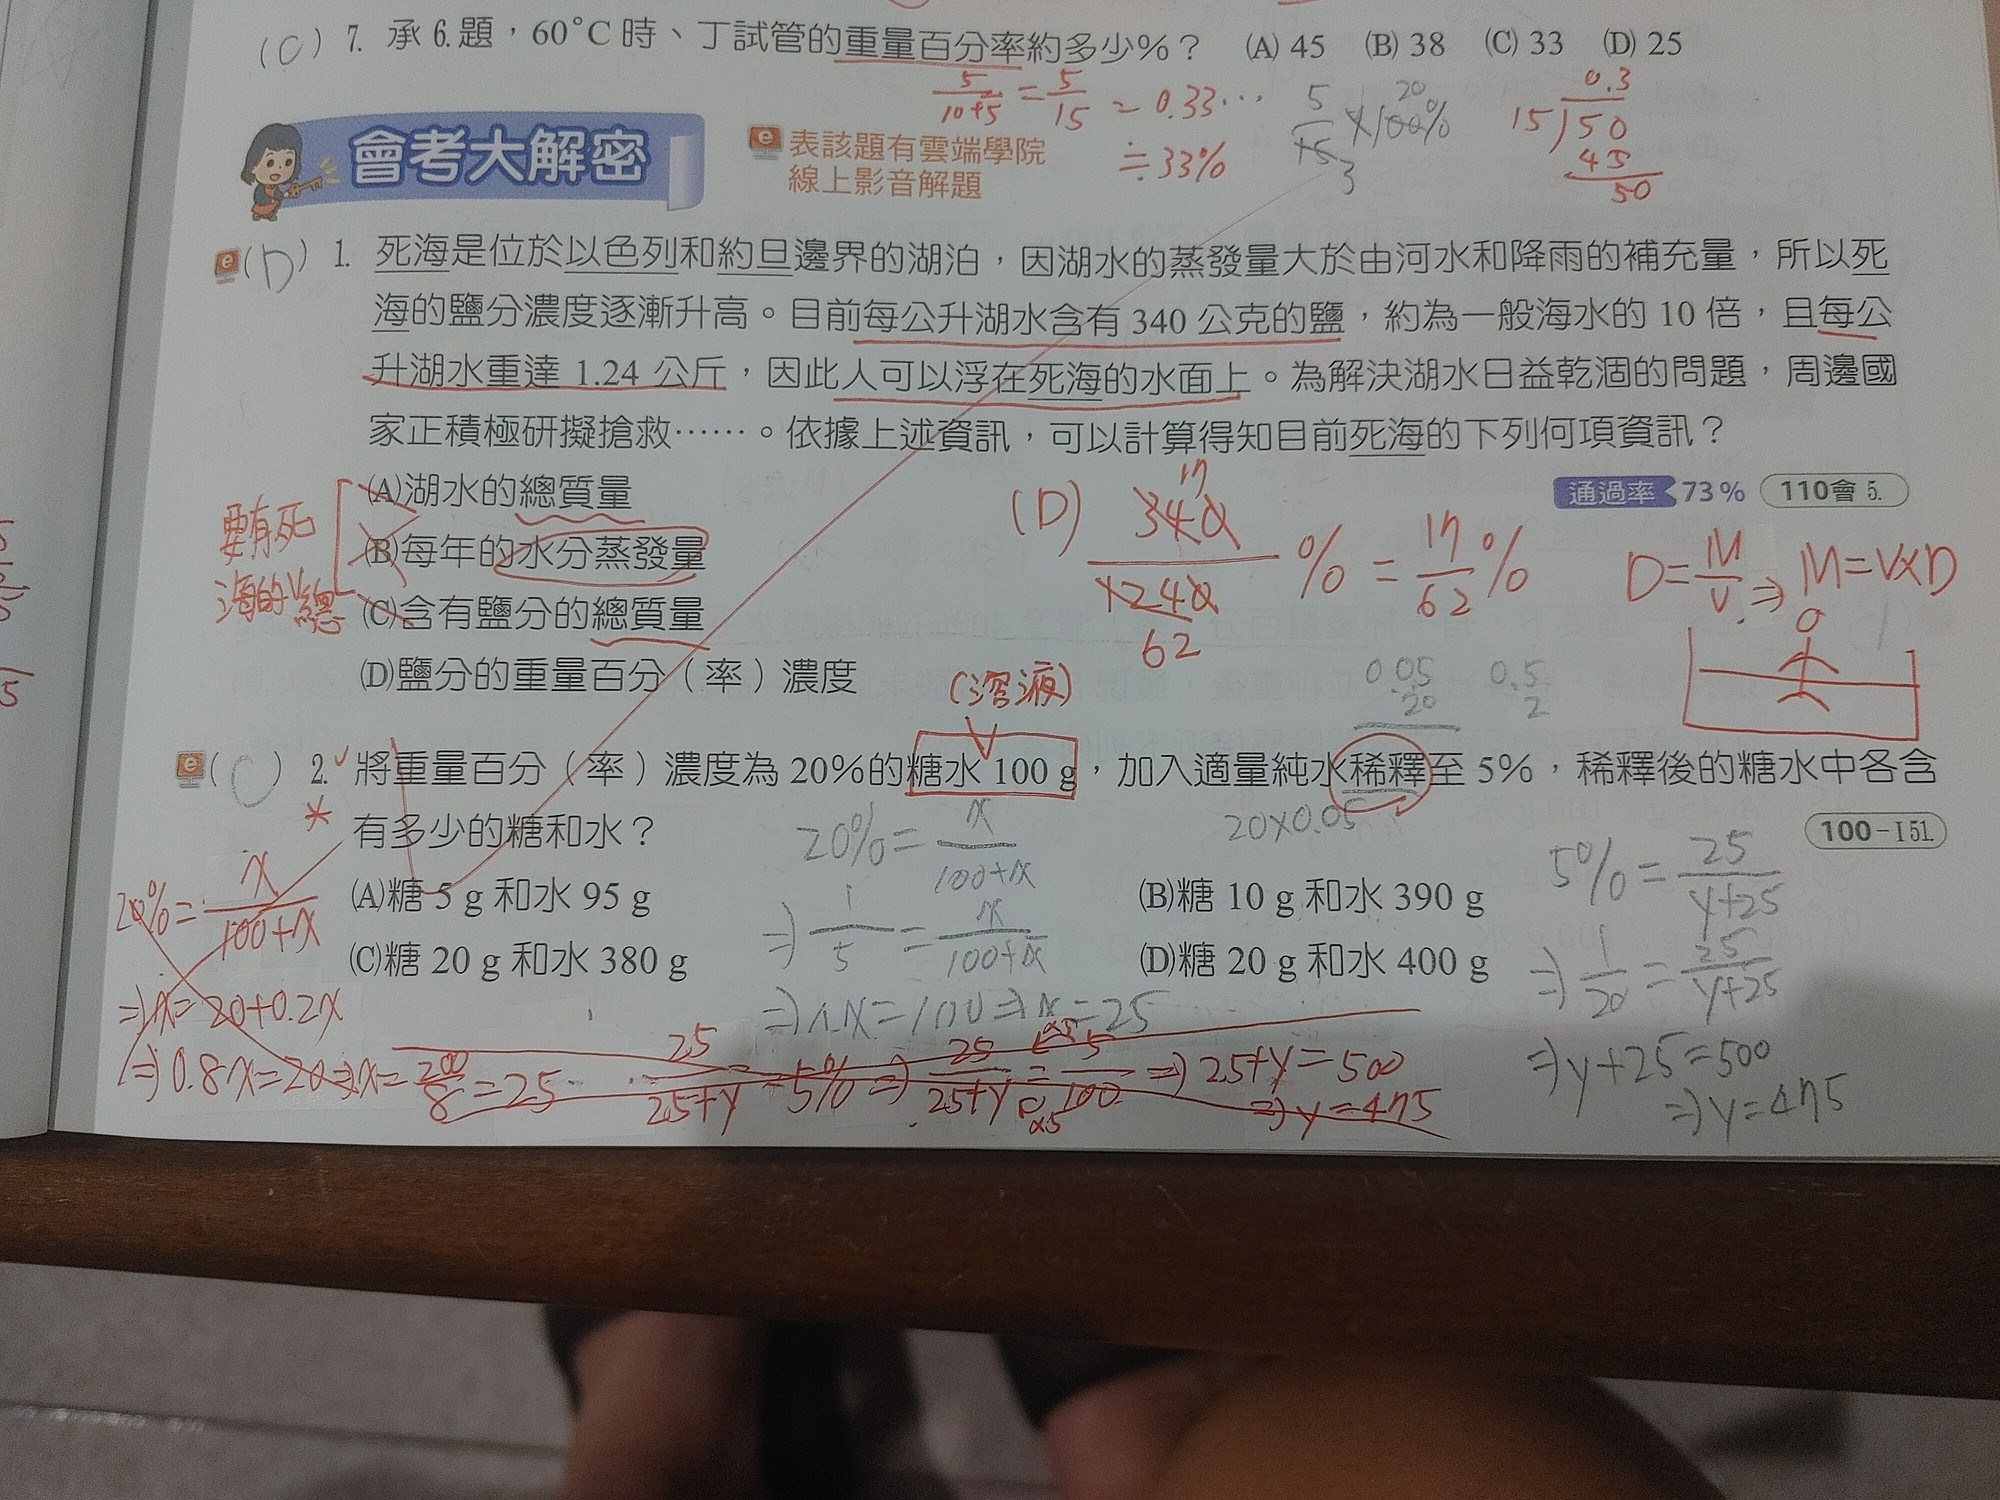 (C) 7. 承 6. 題，60°C 時、丁試管的重量百分率約多少%？ (A) 45 (B) 38 (C) 33 (D) 25
5/10+5 = 5/15 = 0.33… ≒ 33%
5/15 × 100%
20
3
0.3
15)50
45
50
會考大解密
e 表該題有雲端學院
線上影音解題
e (D) 1. 死海是位於以色列和約旦邊界的湖泊，因湖水的蒸發量大於由河水和降雨的補充量，所以死
海的鹽分濃度逐漸升高。目前每公升湖水含有 340 公克的鹽，約為一般海水的 10 倍，且每公
升湖水重達 1.24 公斤，因此人可以浮在死海的水面上。為解決湖水日益乾涸的問題，周邊國
家正積極研擬搶救……。依據上述資訊，可以計算得知目前死海的下列何項資訊？
(A)湖水的總質量
通過率 73% 110會 5.
(B)每年的水分蒸發量
(C)含有鹽分的總質量
(D)鹽分的重量百分（率）濃度
要有死
海的V總
(D) 340/1240 % = 17/62 %
17
62
D=M/V ⇒ M=V×D
(溶液)
0.05
20
0.5
2
e (C) 2. 將重量百分（率）濃度為 20%的糖水 100 g，加入適量純水稀釋至 5%，稀釋後的糖水中各含
有多少的糖和水？
100-I 51.
(A)糖 5 g 和水 95 g (B)糖 10 g 和水 390 g
(C)糖 20 g 和水 380 g (D)糖 20 g 和水 400 g
20×0.05
20%= x/100+x
⇒ 1/5 = x/100+x
5%= 25/y+25
⇒ 1/20 = 25/y+25
⇒y+25=500
⇒y=475
20%= x/100+x
⇒x=20+0.2x
⇒0.8x=20⇒x= 200/8 =25
25/25+y =5% ⇒ 25/25+y = 5/100 ⇒25+y=500
⇒y=475